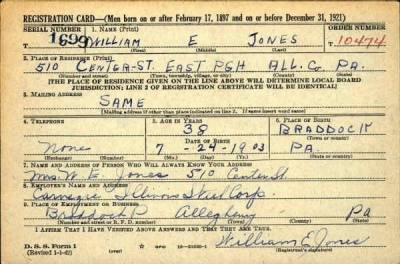 REGISTRATION CARD—(Men born on or after February 17, 1897 and on or before December 31, 1921)
SERIAL NUMBER 1. NAME (Print) ORDER NUMBER
1699 WILLIAM E JONES 10474
(First) (Middle) (Last)
2. PLACE OF RESIDENCE (Print)
510 CENTER-ST. EAST PGH ALL. Co PA.
(Number and street) (Town, township, village, or city) (County) (State)
[THE PLACE OF RESIDENCE GIVEN ON THE LINE ABOVE WILL DETERMINE LOCAL BOARD
JURISDICTION; LINE 2 OF REGISTRATION CERTIFICATE WILL BE IDENTICAL]
3. MAILING ADDRESS
SAME
[Mailing address if other than place indicated on line 2. If same insert word same]
4. TELEPHONE 5. AGE IN YEARS 6. PLACE OF BIRTH
38 BRADDOCK
DATE OF BIRTH (Town or county)
None 7 - 24 - 1903 PA.
(Exchange) (Number) (Mo.) (Day) (Yr.) (State or country)
7. NAME AND ADDRESS OF PERSON WHO WILL ALWAYS KNOW YOUR ADDRESS
Mrs. W. E. Jones 510 Center St
8. EMPLOYER'S NAME AND ADDRESS
Carnegie Illinois Steel Corp.
9. PLACE OF EMPLOYMENT OR BUSINESS
Braddock P. Allegheny Pa
(Number and street or R. F. D. number) (Town) (County) (State)
I AFFIRM THAT I HAVE VERIFIED ABOVE ANSWERS AND THAT THEY ARE TRUE.
D. S. S. Form 1
(Revised 1-1-42) (over) William E Jones
(Registrant's signature)